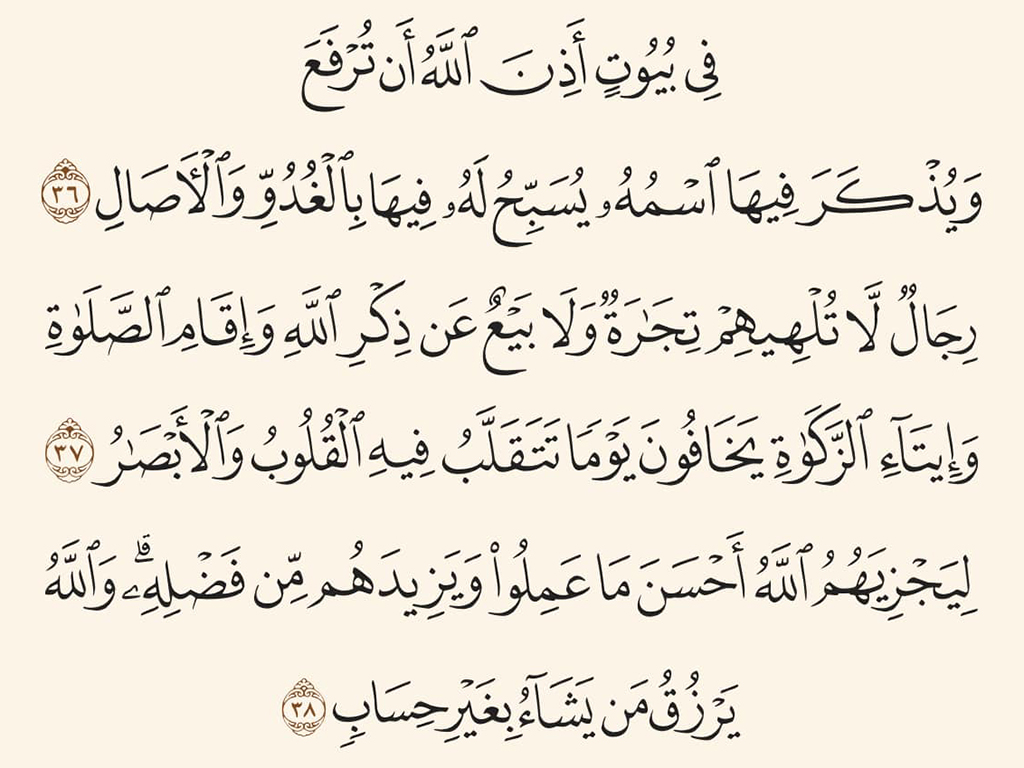 فِى بُيُوتٍ أَذِنَ ٱللَّهُ أَن تُرْفَعَ
وَيُذْكَرَ فِيهَا ٱسْمُهُۥ يُسَبِّحُ لَهُۥ فِيهَا بِٱلْغُدُوِّ وَٱلْـَٔاصَالِ ٣٦
رِجَالٌ لَّا تُلْهِيهِمْ تِجَـٰرَةٌ وَلَا بَيْعٌ عَن ذِكْرِ ٱللَّهِ وَإِقَامِ ٱلصَّلَوٰةِ
وَإِيتَآءِ ٱلزَّكَوٰةِ يَخَافُونَ يَوْمًا تَتَقَلَّبُ فِيهِ ٱلْقُلُوبُ وَٱلْأَبْصَـٰرُ ٣٧
لِيَجْزِيَهُمُ ٱللَّهُ أَحْسَنَ مَا عَمِلُوا۟ وَيَزِيدَهُم مِّن فَضْلِهِۦ ۗ وَٱللَّهُ
يَرْزُقُ مَن يَشَآءُ بِغَيْرِ حِسَابٍ ٣٨